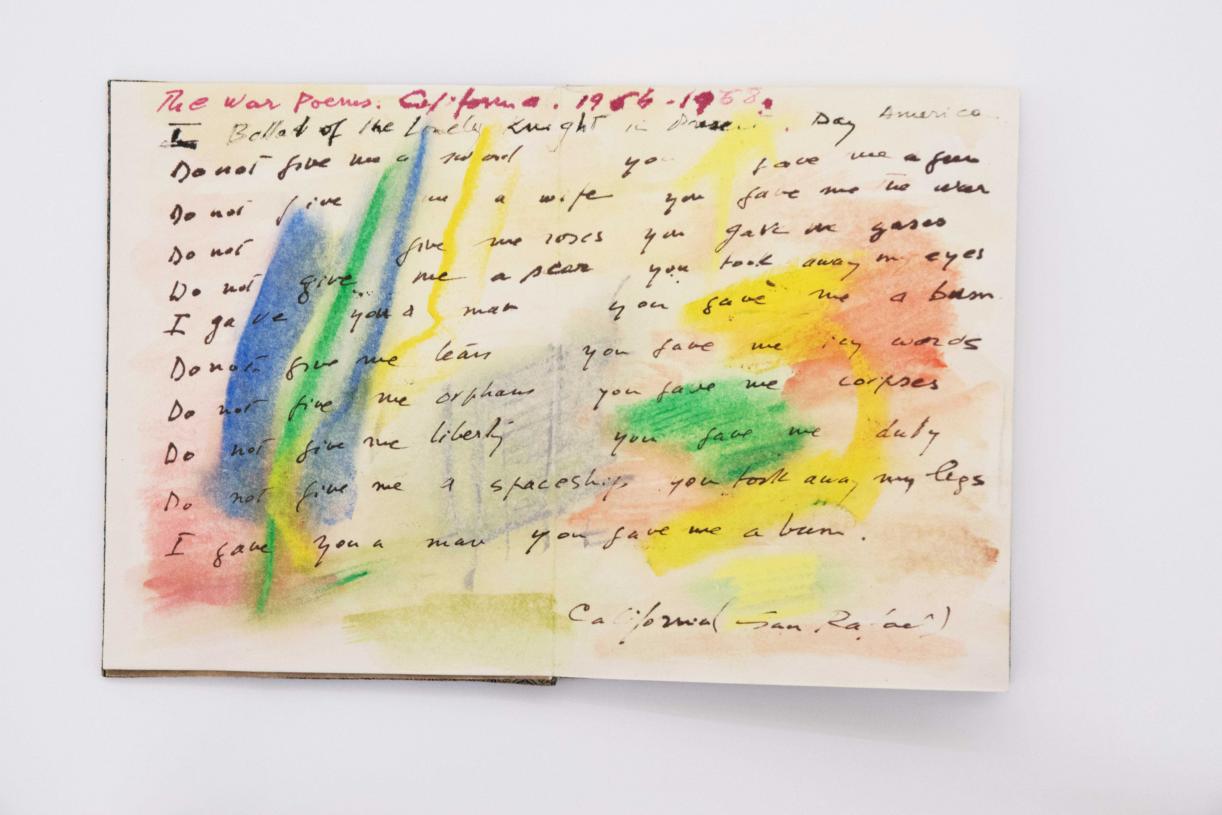 The War Poems. California. 1966-1968.
I Ballad of the Lonely Knight in Present. Day America
Do not give me a sword you gave me a gun
Do not give me a wife you gave me the war
Do not give me roses you gave me gases
Do not give me a you took away my eyes
I gave you a man you gave me a bum
Do not give me tears you gave me icy words
Do not give me orphans you gave me corpses
Do not give me liberty you gave me duty
Do not give me a spaceship you took away my legs
I gave you a man you gave me a bum.
California (San Rafael)